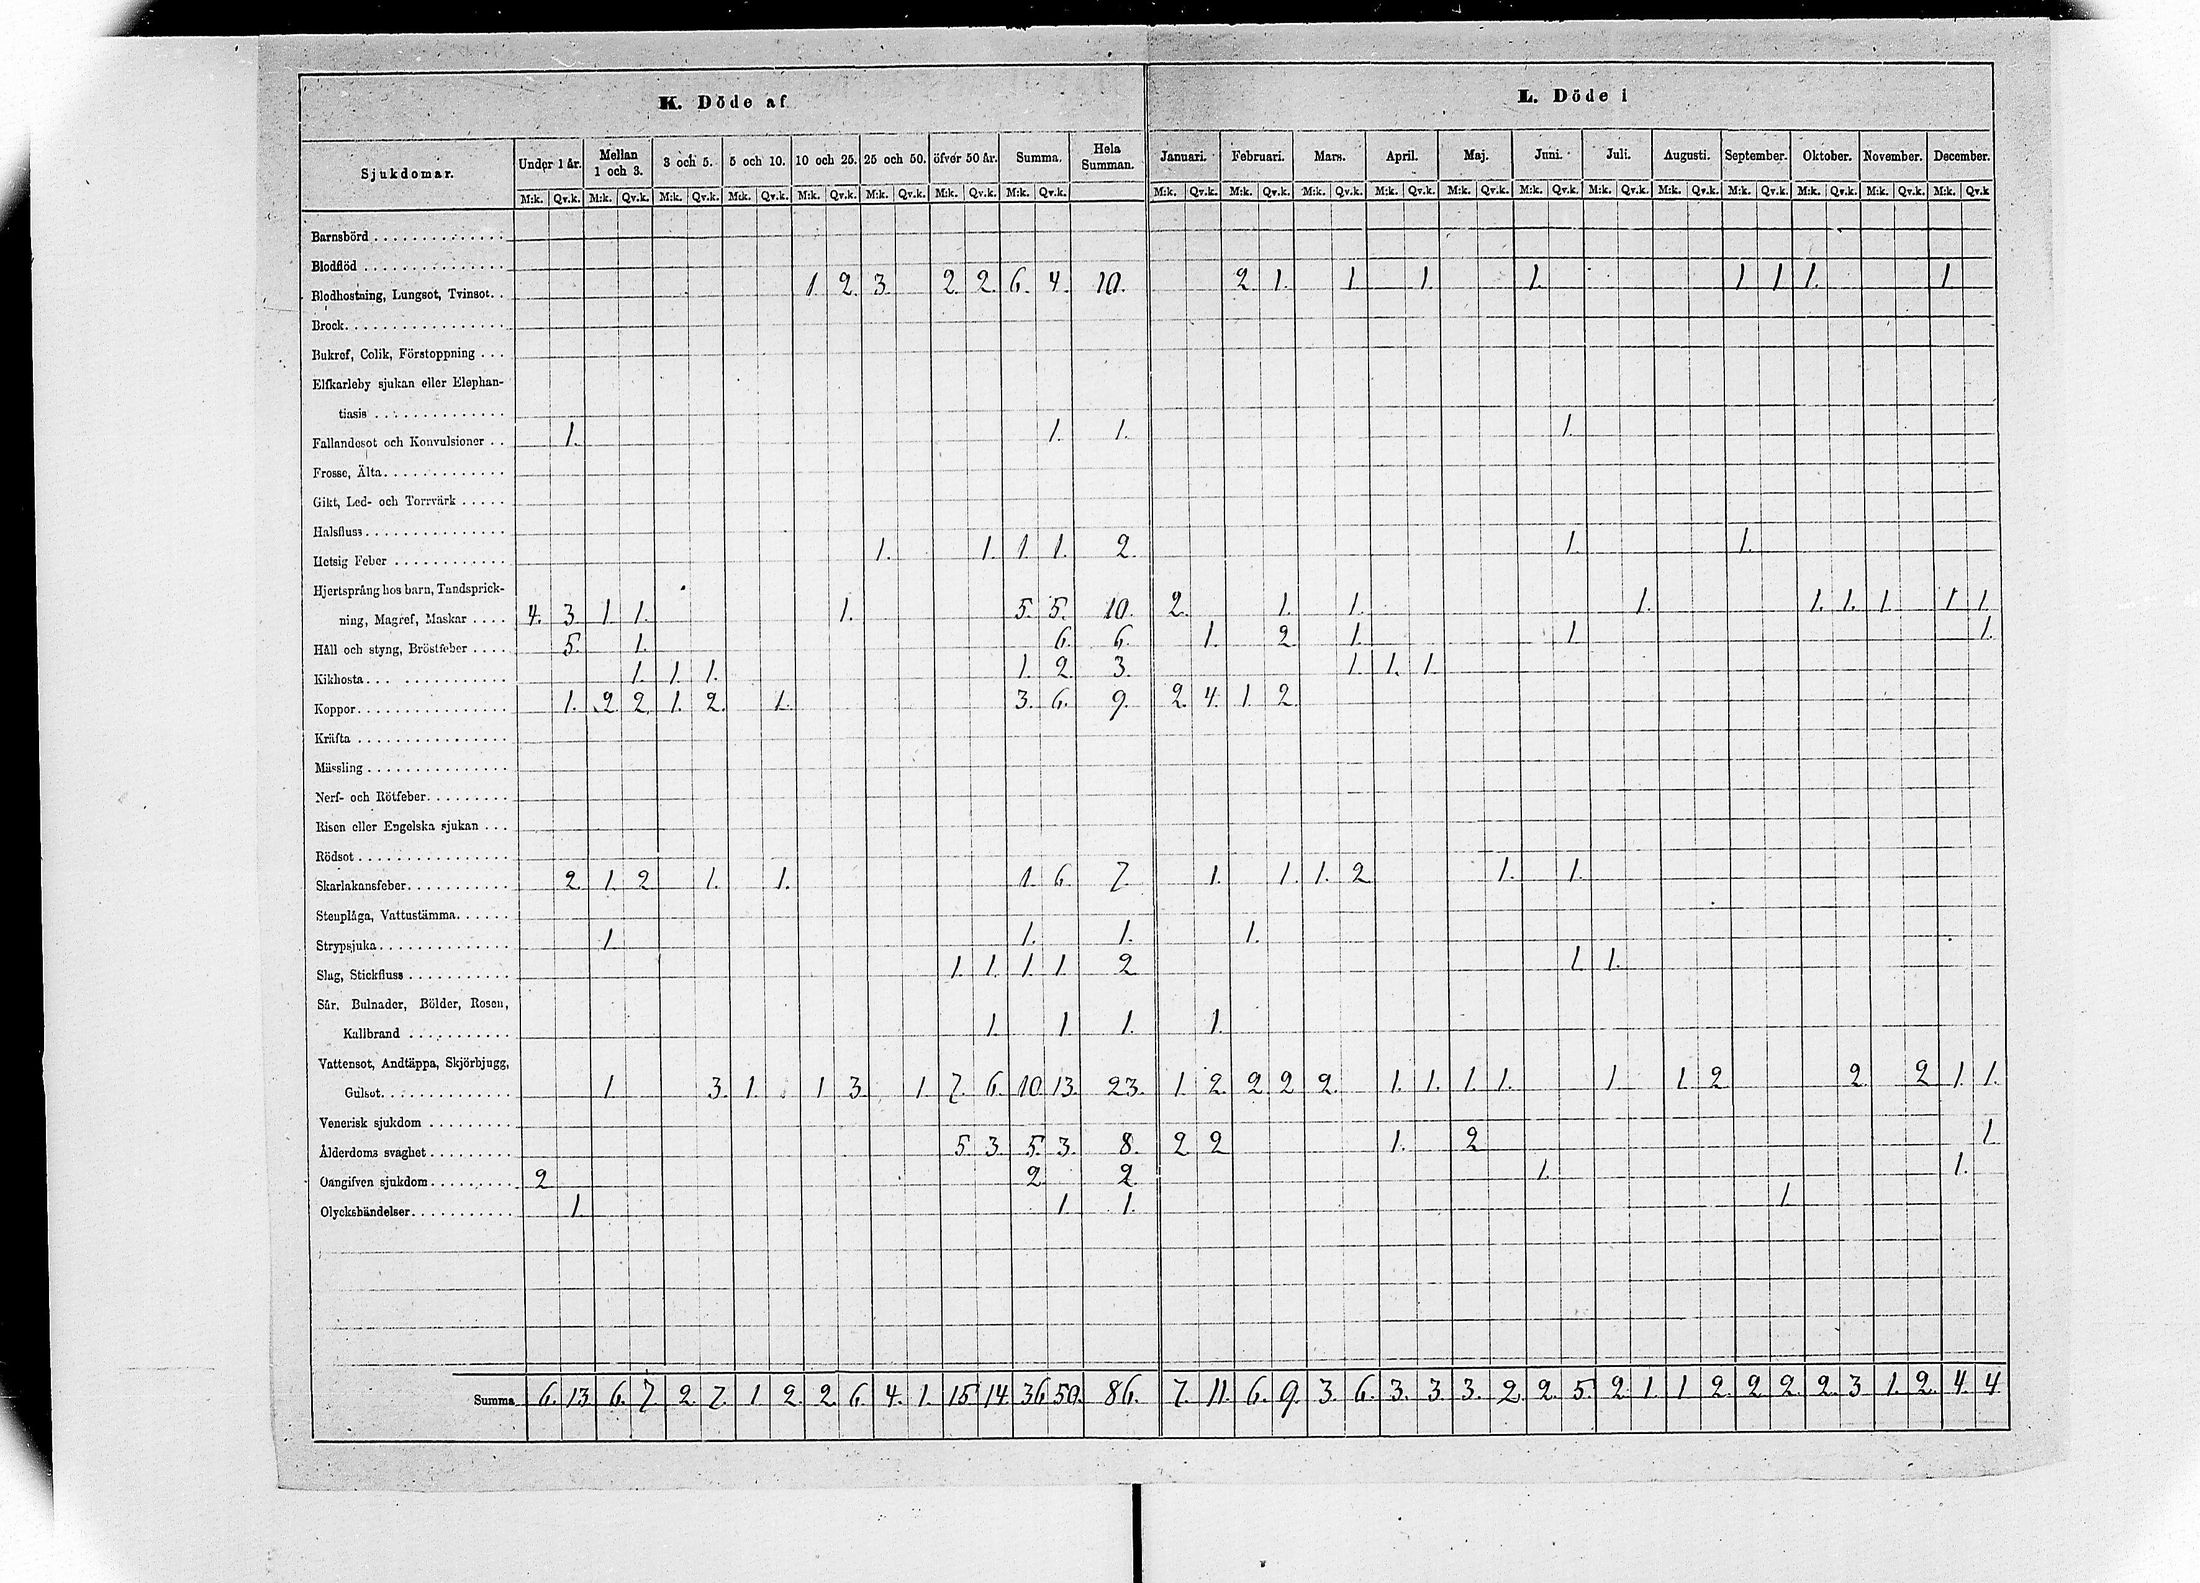 K. Döde af L. Döde i
Sjukdomar. Under 1 år. Mellan 1 och 3. 3 och 5. 5 och 10. 10 och 25. 25 och 50. öfver 50 år. Summa. Hela Summan. Januari. Februari. Mars. April. Maj. Juni. Juli. Augusti. September. Oktober. November. December.
M:k. Qv.k. M:k. Qv.k. M:k. Qv.k. M:k. Qv.k. M:k. Qv.k. M:k. Qv.k. M:k. Qv.k. M:k. Qv.k. M:k. Qv.k. M:k. Qv.k. M:k. Qv.k. M:k. Qv.k. M:k. Qv.k. M:k. Qv.k. M:k. Qv.k. M:k. Qv.k. M:k. Qv.k. M:k. Qv.k. M:k. Qv.k. M:k. Qv.k
Barnsbörd
Blodflöd
Blodhostning, Lungsot, Tvinsot. 1 2. 3. 2. 2. 6. 4. 10. 2 1. 1. 1. 1. 1 1 1. 1.
Brock
Bukref, Colik, Förstoppning
Elfkarleby sjukan eller Elephan-
tiasis
Fallandesot och Konvulsioner 1. 1. 1. 1.
Frosse, Älta
Gikt, Led- och Torrvärk
Halsfluss
Hetsig Feber 1. 1. 1 1. 2. 1. 1.
Hjertsprång hos barn, Tandsprick-
ning, Magref, Maskar 4. 3. 1 1. 1. 5. 5. 10. 2. 1. 1. 1. 1. 1. 1. 1 1.
Håll och styng, Bröstfeber 5. 1. 6. 6. 1. 2 1. 1. 1.
Kikhosta 1. 1. 1. 1. 2. 3. 1. 1. 1.
Koppor 1. 2 2. 1. 2. 1. 3. 6. 9. 2. 4. 1. 2.
Kräfta
Mässling
Nerf- och Rötfeber
Risen eller Engelska sjukan
Rödsot
Skarlakansfeber 2. 1. 2 1. 1. 1. 6. 7. 1. 1. 1. 2 1. 1.
Stenplåga, Vattustämma
Strypsjuka 1. 1. 1. 1.
Slag, Stickfluss 1. 1. 1. 1. 2 1. 1.
Sår, Bulnader, Bölder, Rosen,
Kallbrand 1. 1 1. 1.
Vattensot, Andtäppa, Skjörbjugg,
Gulsot 1 3. 1. 1 3. 1 7. 6. 10. 13. 23. 1. 2. 2. 2 2. 1. 1. 1. 1. 1 1. 2 2. 2 1. 1.
Venerisk sjukdom
Ålderdoms svaghet 5. 3. 5. 3. 8. 2. 2 1. 2 1
Oangifven sjukdom 2 2. 2. 1. 1.
Olyckshändelser 1. 1 1. 1.
Summa 6. 13. 6. 7. 2. 7. 1. 2. 2. 6. 4. 1. 15. 14. 36 50. 86. 7. 11. 6. 9. 3. 6. 3. 3. 3. 2. 2. 5. 2. 1. 1 2. 2. 2. 2. 3. 1. 2. 4. 4